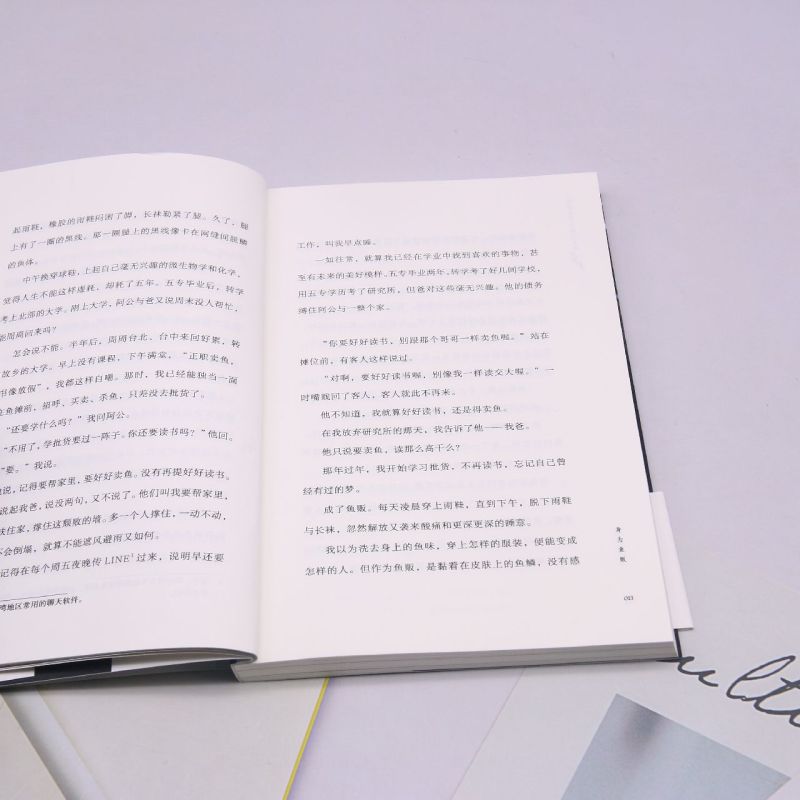 起雨鞋，橡胶的雨鞋闷困了脚，长袜勒紧了腿。久了，腿
上有了一圈的黑线。那一圈腿上的黑线像卡在网缝间脱鳞
的鱼体。
中午换穿球鞋，上起自己毫无兴趣的微生物学和化学，
觉得人生不能这样虚耗，却耗了五年。五专毕业后，转学
考上北部的大学。刚上大学，阿公与爸又说周末没人帮忙，
能周周回来吗？
怎会说不能。半年后，周周台北、台中来回好累，转
故乡的大学。早上没有课程，下午满堂，“正职卖鱼，
书像放假”，我都这样自嘲。那时，我已经能独当一面
鱼摊前，招呼、买卖、杀鱼，只差没去批货了。
“还要学什么吗？”我问阿公。
“不用了，学批货要过一阵子。你还要读书吗？”他回。
“要。”我说。
说，记得要帮家里，要好好卖鱼。没有再提好好读书。
说起我爸，说没两句，又不说了。他们叫我要帮家里，
扶住家，撑住这颓败的墙。多一个人撑住，一动不动，
不会倒塌，就算不能遮风避雨又如何。
记得在每个周五夜晚传 LINE¹ 过来，说明早还要
湾地区常用的聊天软件。
工作，叫我早点睡。
一如往常，就算我已经在学业中找到喜欢的事物，甚
至有未来的美好模样。五专毕业两年，转学考了好几间学校，
用五专学历考了研究所，但爸对这些毫无兴趣。他的债务
缚住阿公与一整个家。
“你要好好读书，别跟那个哥哥一样卖鱼啦。”站在
摊位前，有客人这样说过。
“对啊，要好好读书喔，别像我一样读交大喔。”一
时嘴贱回了客人，客人就此不再来。
他不知道，我就算好好读书，还是得卖鱼。
在我放弃研究所的那天，我告诉了他——我爸。
他只说要卖鱼，读那么高干么？
那年过年，我开始学习批货，不再读书，忘记自己曾
经有过的梦。
成了鱼贩。每天凌晨穿上雨鞋，直到下午，脱下雨鞋
与长袜，忽然解放又袭来酸痛和更深更深的睡意。
我以为洗去身上的鱼味，穿上怎样的服装，便能变成
怎样的人。但作为鱼贩，是黏着在皮肤上的鱼鳞，没有感
身为鱼贩
013